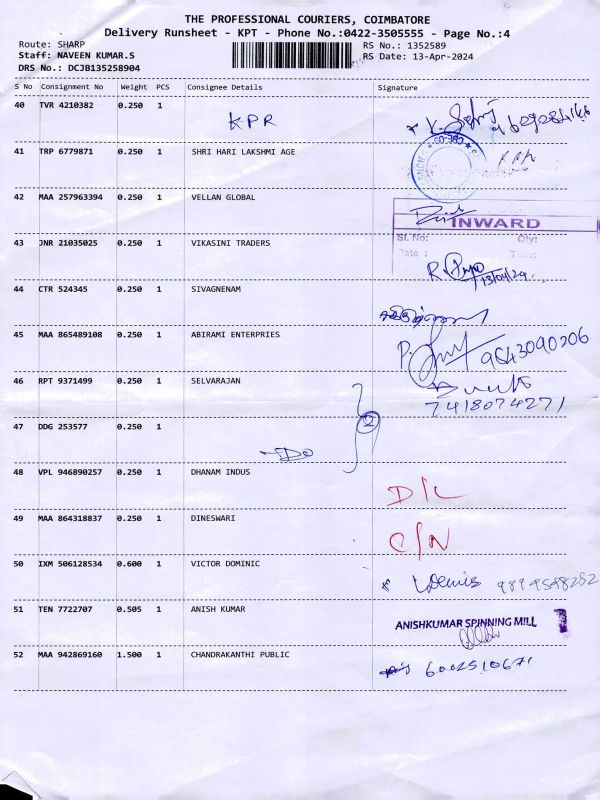 THE PROFESSIONAL COURIERS, COIMBATORE
Delivery Runsheet - KPT - Phone No.:0422-3505555 - Page No.:4
Route: SHARP RS No.: 1352589
Staff: NAVEEN KUMAR.S RS Date: 13-Apr-2024
DRS No.: DCJB135258904
S No Consignment No Weight PCS Consignee Details Signature
40 TVR 4210382 0.250 1 KPR
41 TRP 6779871 0.250 1 SHRI HARI LAKSHMI AGE
42 MAA 257963394 0.250 1 VELLAN GLOBAL
INWARD
Sl. No: Qty:
Date : Time:
43 JNR 21035025 0.250 1 VIKASINI TRADERS
13/04/24
44 CTR 524345 0.250 1 SIVAGNENAM
45 MAA 865489108 0.250 1 ABIRAMI ENTERPRIES 9643090206
46 RPT 9371499 0.250 1 SELVARAJAN
7418074271
47 DDG 253577 0.250 1 -Do 2
48 VPL 946890257 0.250 1 DHANAM INDUS D/L
49 MAA 864318837 0.250 1 DINESWARI C/N
50 IXM 506128534 0.600 1 VICTOR DOMINIC
51 TEN 7722707 0.505 1 ANISH KUMAR ANISHKUMAR SPINNING MILL
52 MAA 942869160 1.500 1 CHANDRAKANTHI PUBLIC